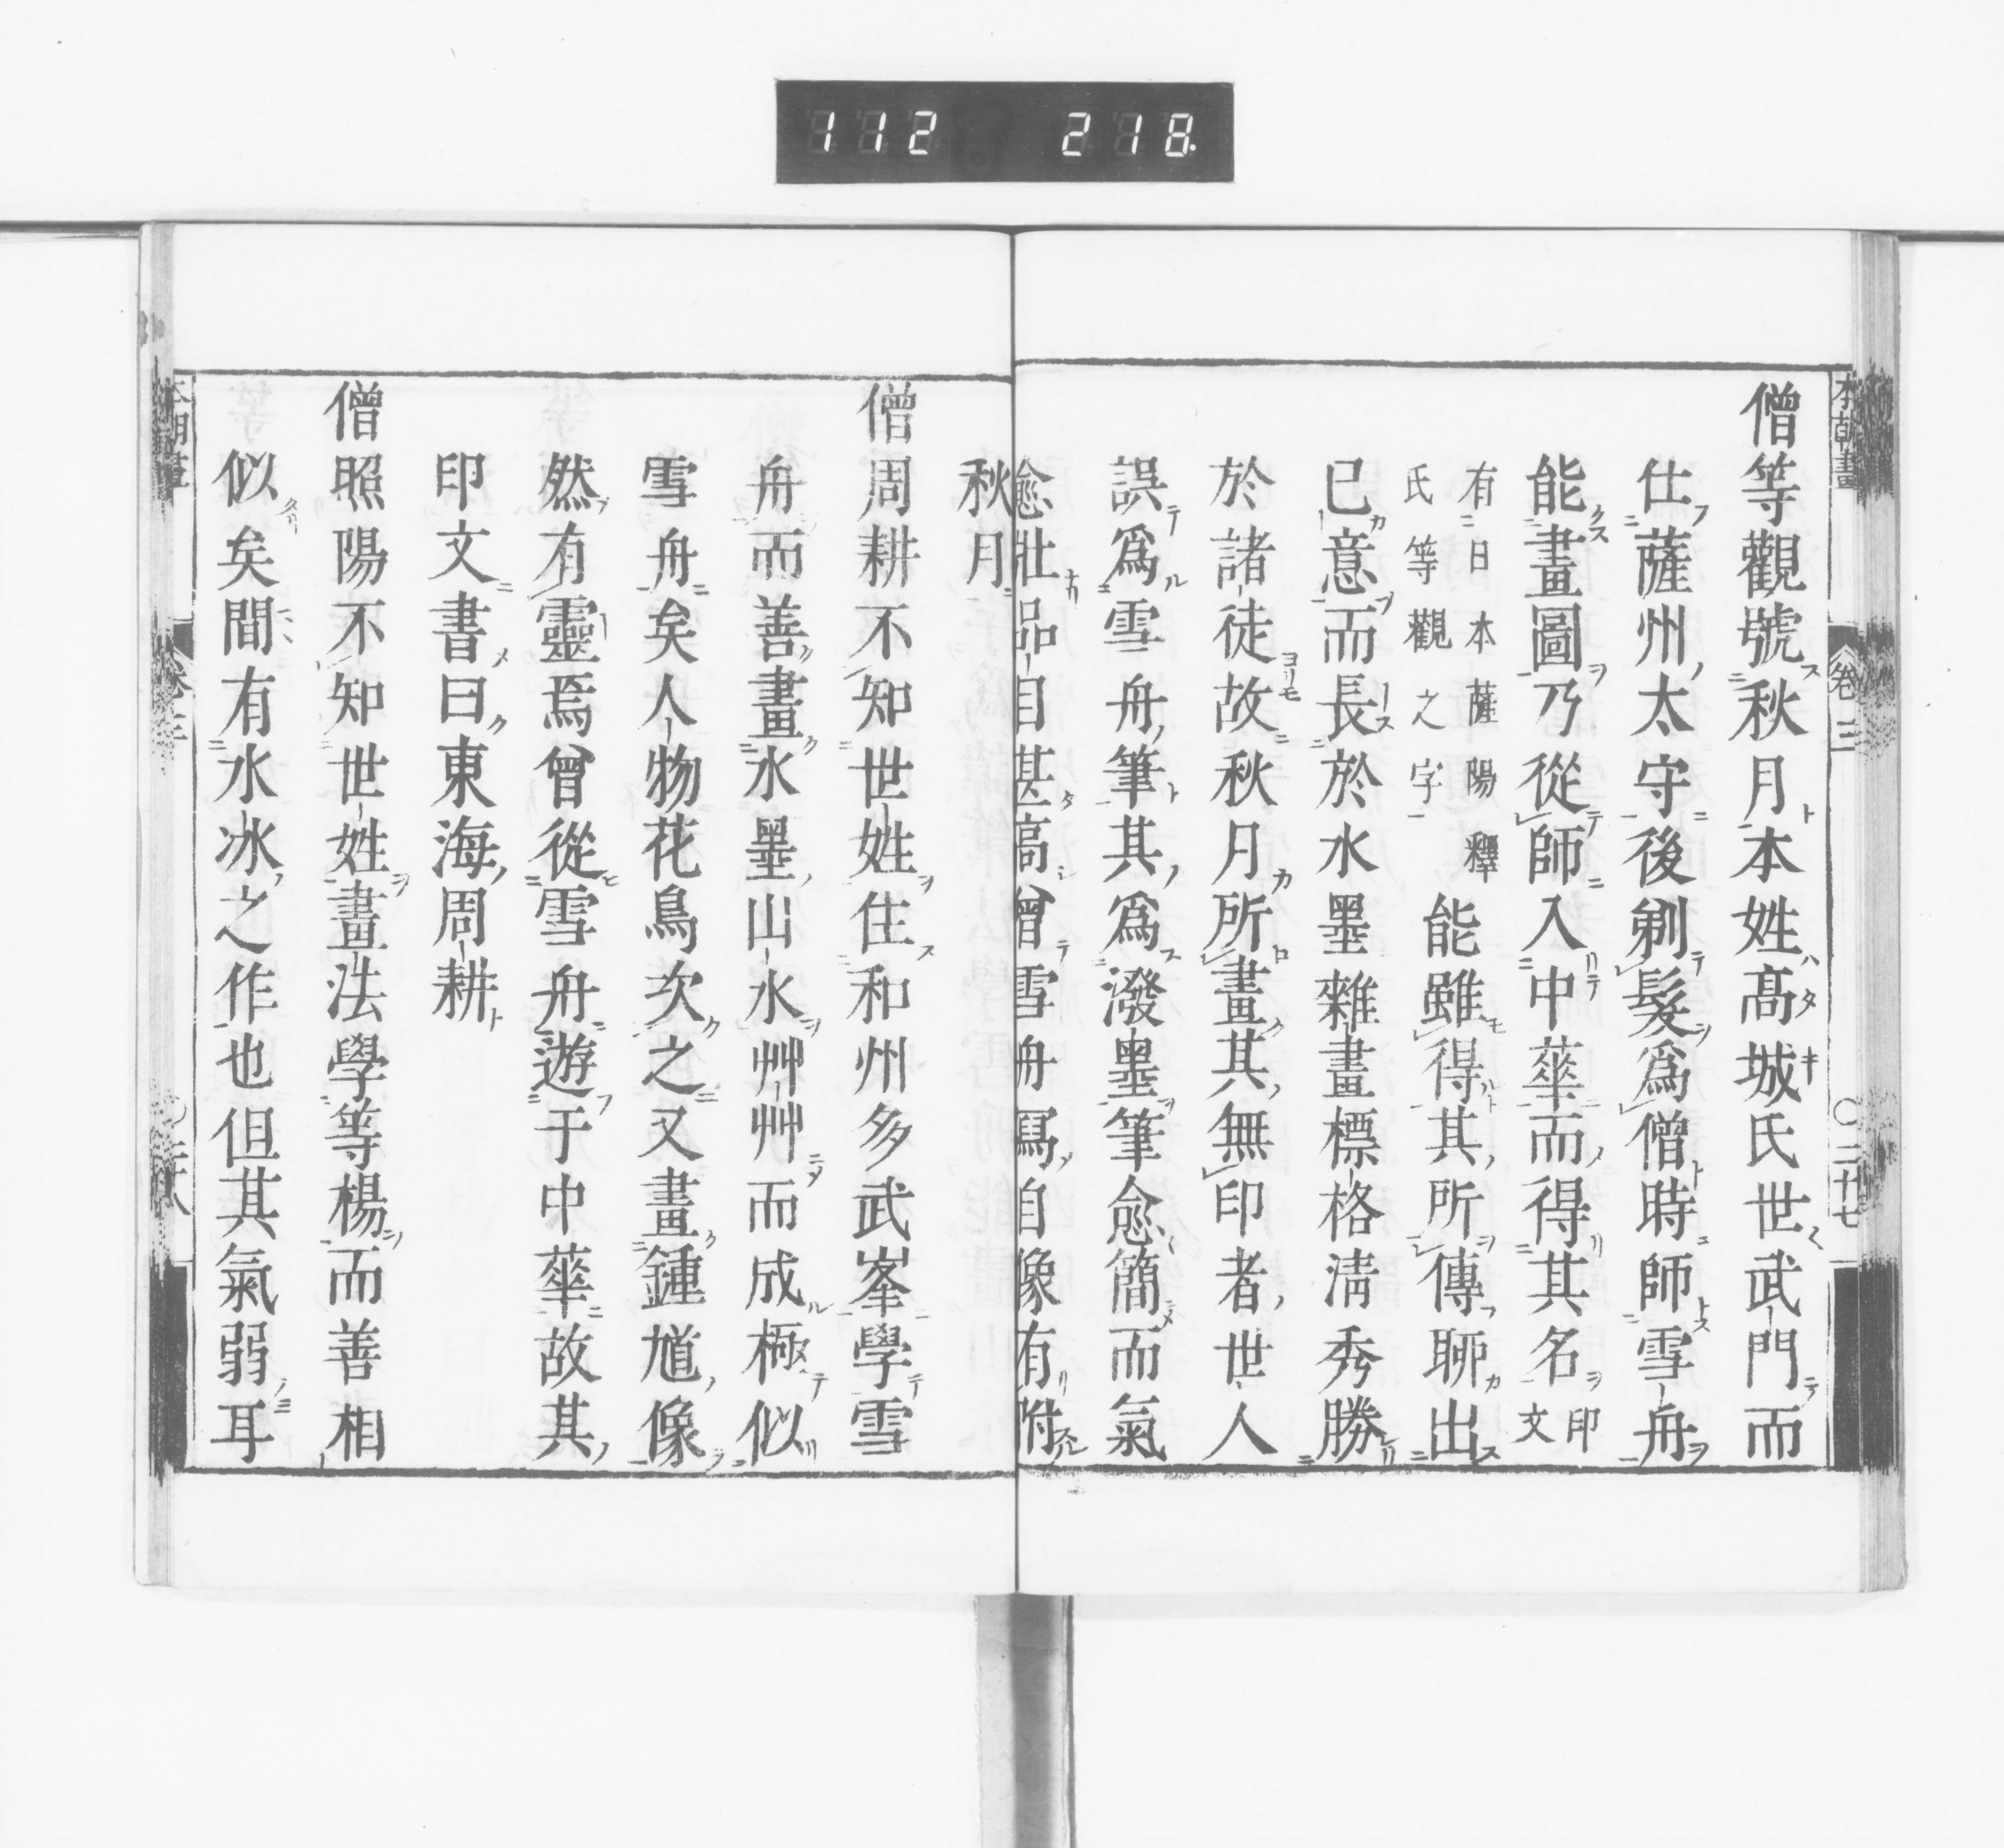 112 218.
本朝畫
卷三
〇三十七
僧等觀號秋月本姓高城氏世武門而
仕薩州太守後剃髮爲僧時師雪舟
能畫圖乃從師入中華而得其名印文
有日本薩陽釋
氏等觀之字
能雖得其所傳聊出
已意而長於水墨雜畫標格淸秀勝
於諸徒故秋月所畫其無印者世人
誤爲雪舟筆其爲潑墨筆愈簡而氣
愈壯品目甚高曾雪舟寫自像有附
秋月
僧周耕不知世姓住和州多武峯學雪
舟而善畫水墨山水艸艸而成極似
雪舟矣人物花鳥次之又畫鍾馗像
然有靈焉曾從雪舟遊于中華故其
印文書曰東海周耕
僧照陽不知世姓畫法學等楊而善相
似矣間有水冰之作也但其氣弱耳